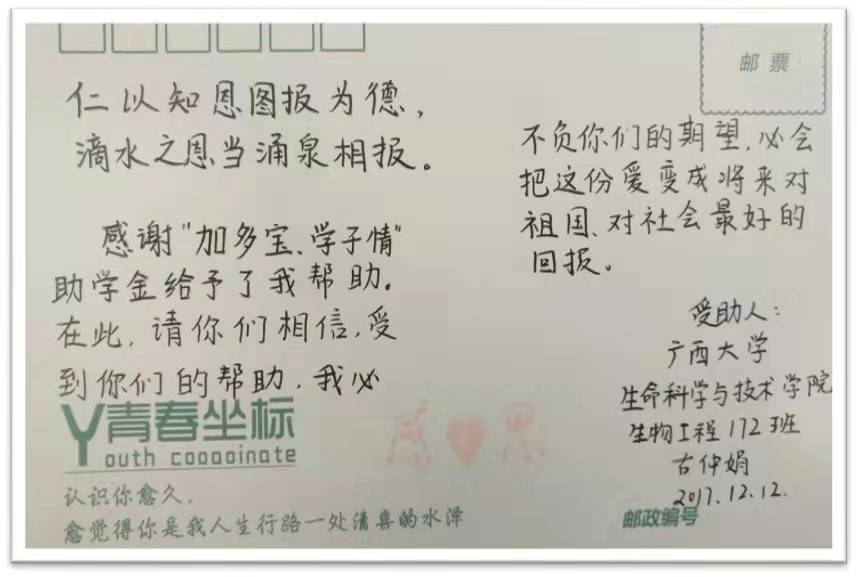 邮票
仁以知恩图报为德，
滴水之恩当涌泉相报。
感谢“加多宝、学子情”
助学金给予了我帮助。
在此，请你们相信，受
到你们的帮助，我必
不负你们的期望，必会
把这份爱变成将来对
祖国、对社会最好的
回报。
受助人：
广西大学
生命科学与技术学院
生物工程172班
古仲娟
2017.12.12.
青春坐标
Youth cooooinate
感恩
认识你愈久，
愈觉得你是我人生行路一处清喜的水泽
邮政编号